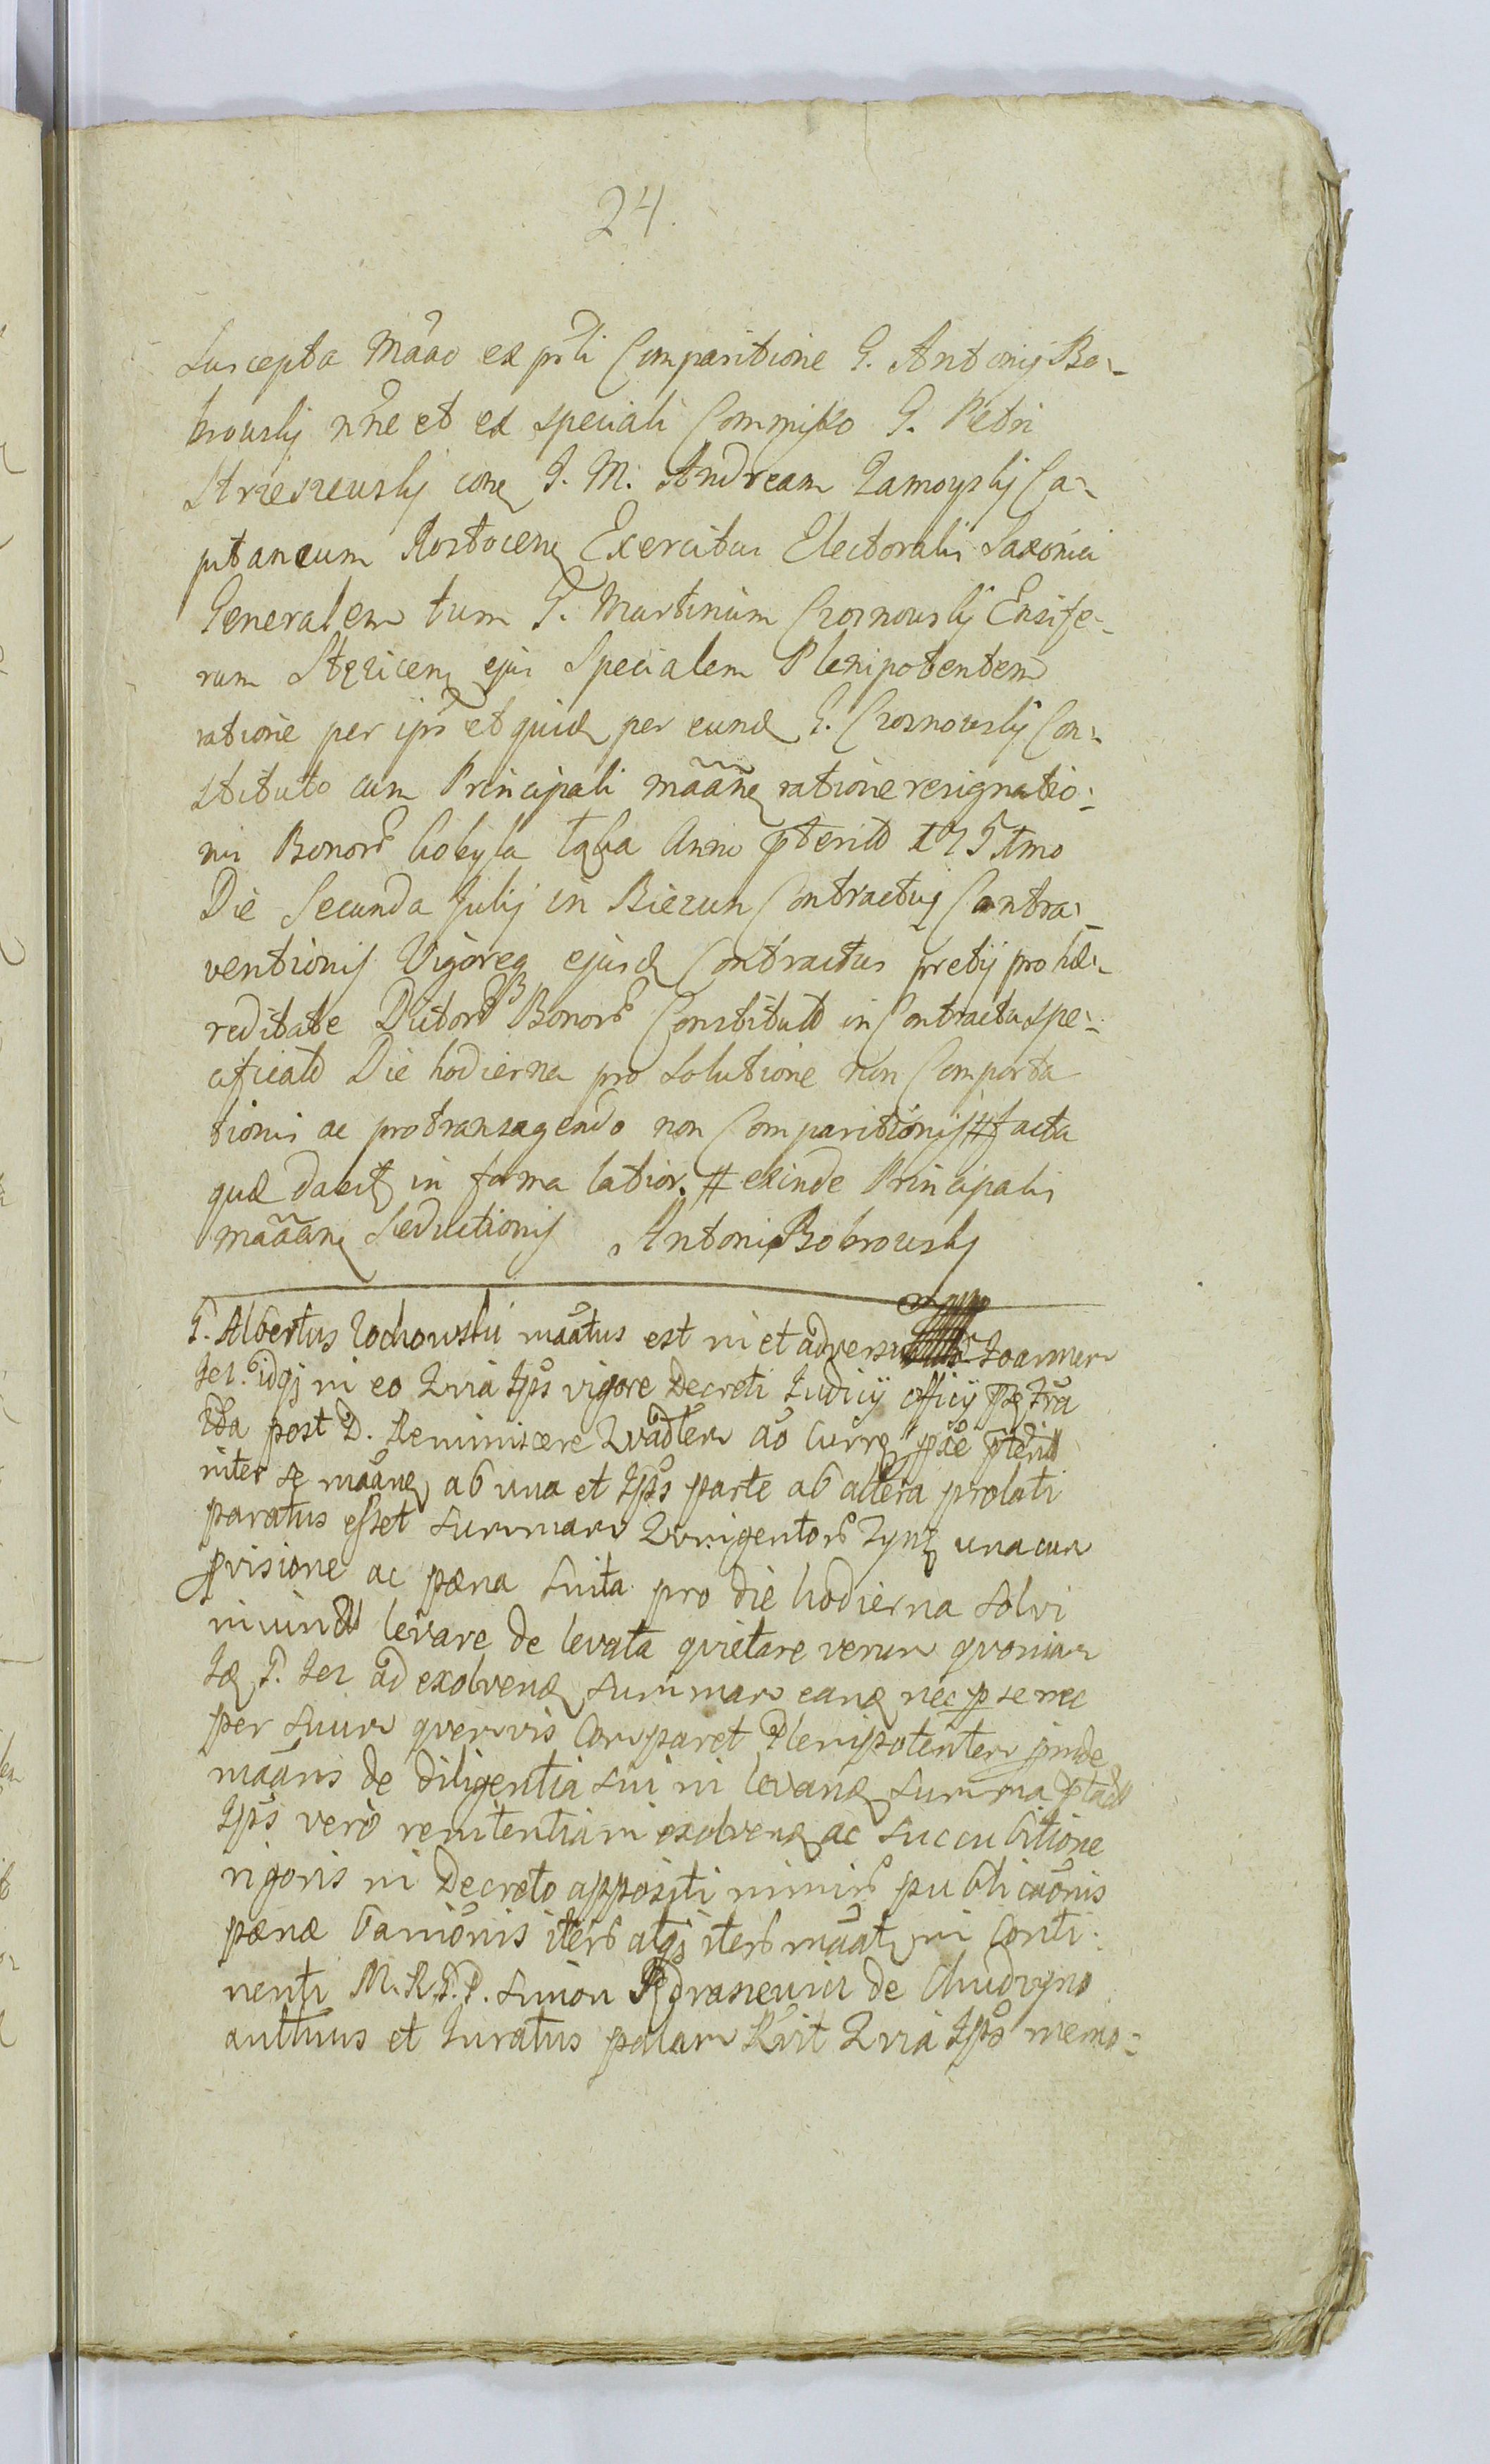 24.
Suscepta Mãao ex prli Comparitione G. Antonij Bo-
browskj nne et ex speciali Commisso G. Petri
Strzeszewskj cone J. M. Andream Zamoyskj Ca-
pitaneum Rostocen Exercitus Electoralis Saxonici
Generalem tum G. Martinum Czosnowskj Ensife-
rum ejus Specialem Plenipotentem
ratione per ips et quid per eund G. Czosnowskj Con-
stituto cum Principali mãane ratione resignatio-
nis Bonor Kobyla Łąka Anno pterito 1751mo
Die Secunda Julij in Biezun Contractus Contra-
ventionis Vigoreq ejusd Contractus pretij pro hæ-
reditate Dictor Bonor Constituto in Contractu spe-
cificato Die hodierna pro solutione non Comporta
tionis ac pro transagendo non Comparitionis # facta
quæ dabit in forma latior. # exinde Principalis
mãane Seductionis Antoni Bobrowskj
G. Albertus Zochowski mãatus est in et adversus Joannem
Jez. idq in eo Quia Ips vigore Decreti Judicij officij
post D. Reminiscere ao Curre pterito
inter se mãane ab una et Ips parte ab altera prolati
paratus esset summam Quingentor Tynf una cum
pvisione ac pæna suita pro die hodierna solvi
levare de levata quietare verum quoniam
Id G. Jez ad exolvend summam eand nec p se nec
per suum quemvis Comparet Plenipotentem pinde
mãans de diligentia sui in levand summa
Ips vero renitentia in exolvend ac succubitione
rigoris in Decreto appositi nimir publicaonis
pænæ banionis iter atq iter mãat in Conti-
nenti M. R. G. D. Simon de Chudzyno
aultinus et Juratus palam Rvit Quia Ips memo-